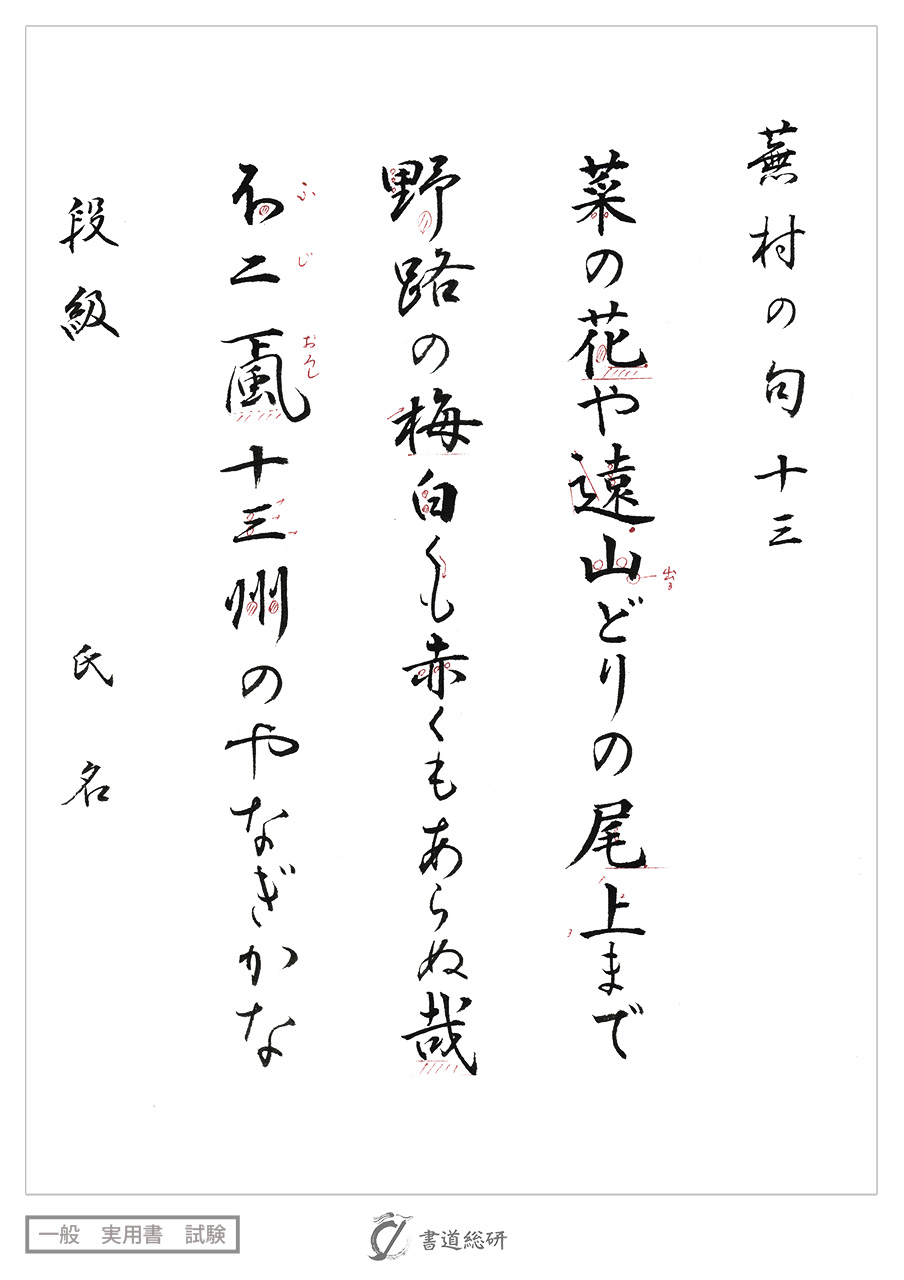 蕪村の句十三
菜の花や遠山どりの尾上まで
出る
野路の梅白くも赤くもあらぬ哉
ふじ おろし
不二颪十三州のやなぎかな
段級 氏名
一般 実用書 試験
書道総研